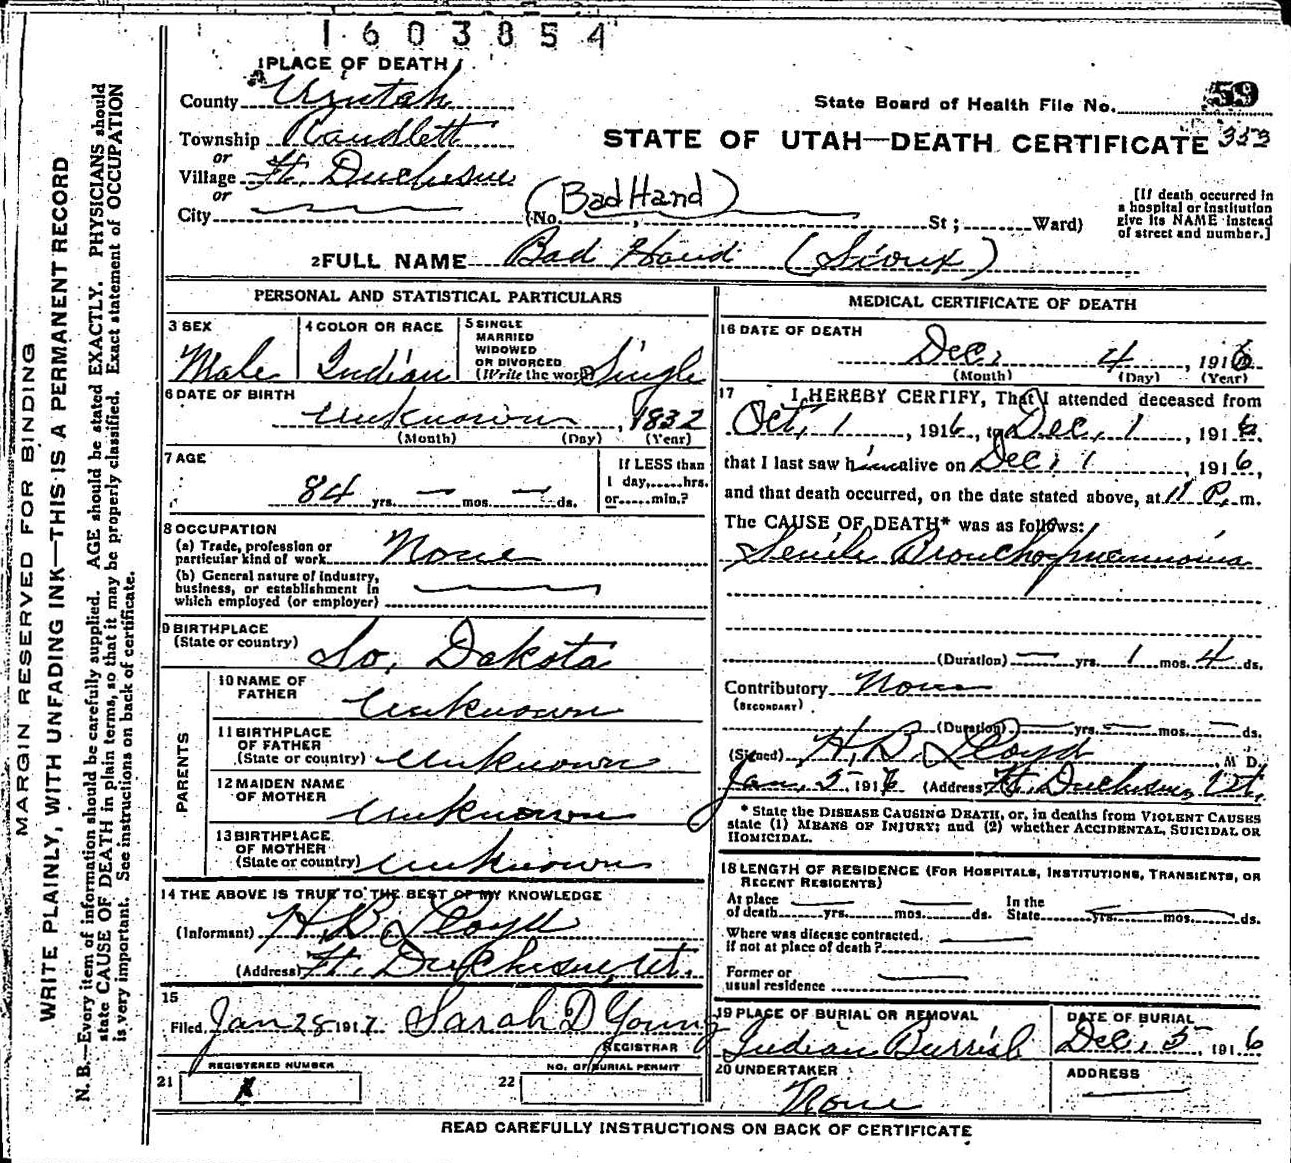 1603854
1 PLACE OF DEATH
County Uintah
State Board of Health File No. 59
Township Randlett
STATE OF UTAH—DEATH CERTIFICATE 353
or
Village Ft. Duchesne
or
City
(Bad Hand)
(No. St; Ward)
[If death occurred in
a hospital or institution
give its NAME instead
of street and number.]
2 FULL NAME Bad Hand (Sioux)
PERSONAL AND STATISTICAL PARTICULARS
3 SEX
Male
4 COLOR OR RACE
Indian
5 SINGLE
MARRIED
WIDOWED
OR DIVORCED
(Write the word) Single
6 DATE OF BIRTH
unknown, 1832
(Month) (Day) (Year)
7 AGE
84 yrs. — mos. — ds.
If LESS than
1 day,......hrs.
or......min.?
8 OCCUPATION
(a) Trade, profession or
particular kind of work None
(b) General nature of industry,
business, or establishment in
which employed (or employer)
9 BIRTHPLACE
(State or country) So. Dakota
PARENTS
10 NAME OF
FATHER Unknown
11 BIRTHPLACE
OF FATHER
(State or country) unknown
12 MAIDEN NAME
OF MOTHER unknown
13 BIRTHPLACE
OF MOTHER
(State or country) unknown
14 THE ABOVE IS TRUE TO THE BEST OF MY KNOWLEDGE
(Informant) H. B. Lloyd
(Address) Ft. Duchesne, Ut.
15
Filed Jan 28 1917 Sarah D Young
REGISTRAR
REGISTERED NUMBER
21
NO. OF BURIAL PERMIT
22
MEDICAL CERTIFICATE OF DEATH
16 DATE OF DEATH
Dec. 4, 1916
(Month) (Day) (Year)
17 I HEREBY CERTIFY, That I attended deceased from
Oct. 1, 1916, to Dec. 1, 1916
that I last saw him alive on Dec. 1, 1916,
and that death occurred, on the date stated above, at 11 P. m.
The CAUSE OF DEATH* was as follows:
Senile Bronchopneumonia
(Duration) — yrs. 1 mos. 4 ds.
Contributory None
(SECONDARY)
(Duration) — yrs. — mos. — ds.
(Signed) H. B. Lloyd, M D.
Jan. 5 191 (Address) Ft. Duchesne, Ut.
* State the DISEASE CAUSING DEATH, or, in deaths from VIOLENT CAUSES
state (1) MEANS OF INJURY; and (2) whether ACCIDENTAL, SUICIDAL OR
HOMICIDAL.
18 LENGTH OF RESIDENCE (FOR HOSPITALS, INSTITUTIONS, TRANSIENTS, OR
RECENT RESIDENTS)
At place
of death yrs. mos. ds.
In the
State yrs. mos. ds.
Where was disease contracted,
if not at place of death?
Former or
usual residence
19 PLACE OF BURIAL OR REMOVAL
Indian Burrial
DATE OF BURIAL
Dec. 5, 1916
20 UNDERTAKER
None
ADDRESS
READ CAREFULLY INSTRUCTIONS ON BACK OF CERTIFICATE
MARGIN RESERVED FOR BINDING
WRITE PLAINLY, WITH UNFADING INK—THIS IS A PERMANENT RECORD
N. B.—Every item of information should be carefully supplied. AGE should be stated EXACTLY. PHYSICIANS should
state CAUSE OF DEATH in plain terms, so that it may be properly classified. Exact statement of OCCUPATION
is very important. See instructions on back of certificate.